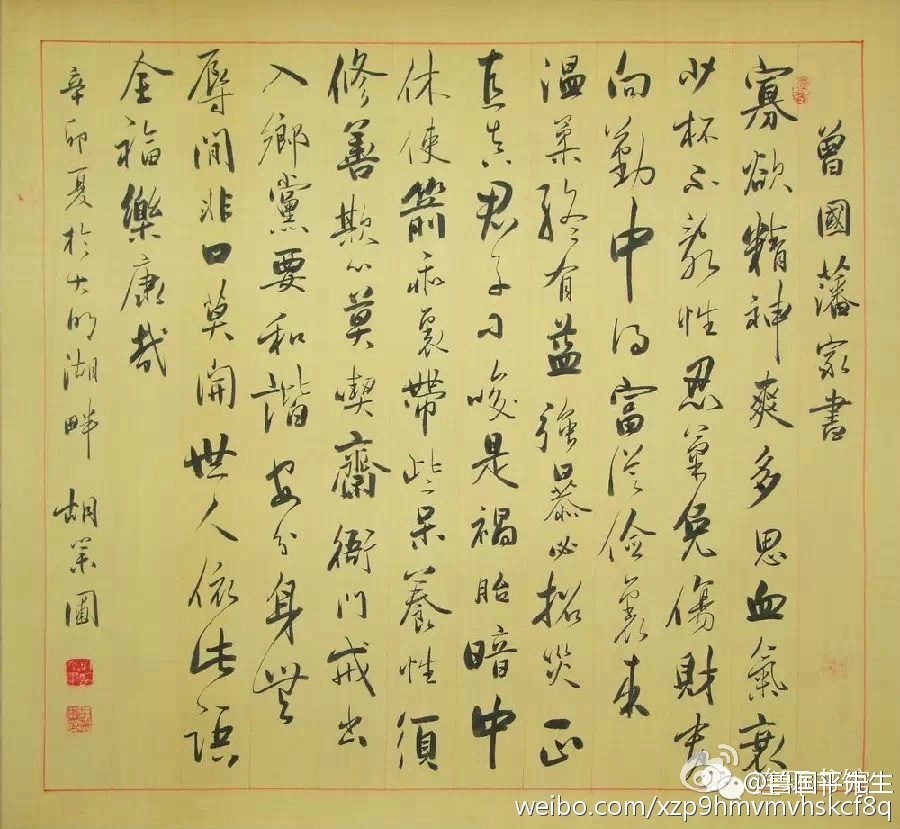 曾國藩家書
寡欲精神爽多思血氣衰
少杯不亂性忍氣免傷財貴
自勤中得富從儉裏來
溫柔終有益強暴必招災正
直真君子刁唆是禍胎暗中
休使箭乖裏帶些呆養性須
修善欺心莫喫齋衙門戒出
入鄉黨要和諧安分身無
辱閒非口莫開世人依此語
全福樂康哉
辛卯夏於大明湖畔 胡業圃
weibo.com/xzp9hmvmvhskcf8q